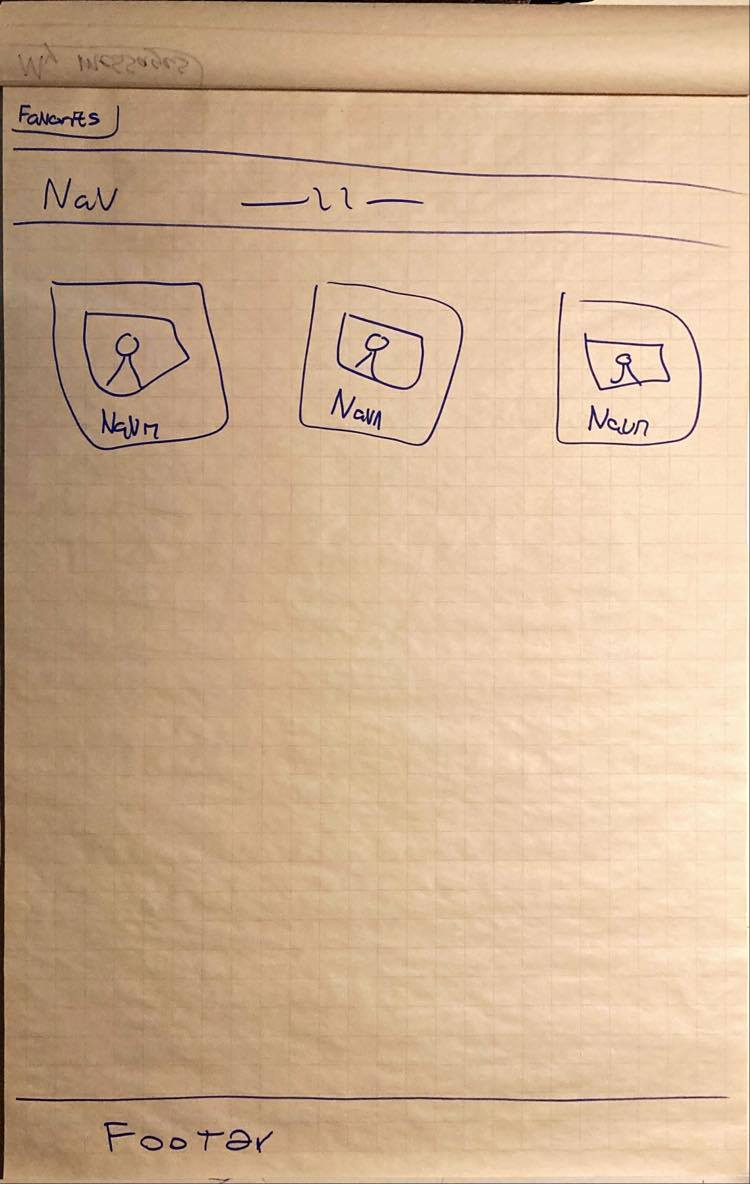 My messages
Favorites
Nav
Navn Navn Navn
Footer